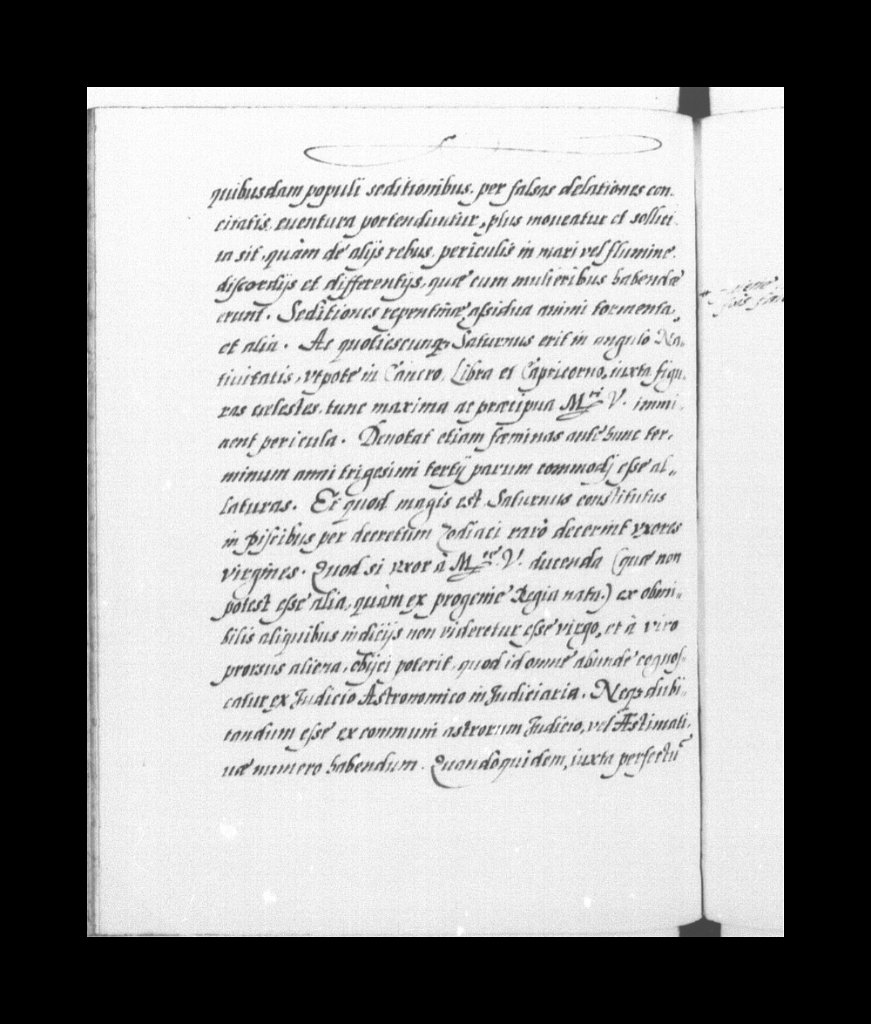 quibusdam populi seditionibus, per falsas delationes con-
citatis, euentura portenduntur, plus moueatur et sollici-
ta sit, quàm de alijs rebus, periculis in mari vel flumine,
discordijs et differentijs, quæ cum mulieribus habendæ
erunt. Seditiones repentinæ, assidua animi tormenta,
et alia. Ac quotiescunq; Saturnus erit in angulo Na-
tiuitatis, vtpote in Cancro, Libra et Capricorno, iuxta figu-
ras cœlestes, tunc maxima ac præcipua M.ti V. immi-
nent pericula. Denotat etiam fæminas ante hunc ter-
minum anni trigesimi tertij parum commodj esse al-
laturas. Et quod magis est Saturnus constitutus
in piscibus per decretum Zodiaci rarò decernit vxores
virgines. Quod si vxor à M.te V. ducenda (quæ non
potest esse alia, quàm ex progenie Regia nata) ex
bilis aliquibus indicijs non videretur esse virgo, et à viro
prorsus aliena, obijci poterit, quod id omne abunde cognos-
catur ex Judicio Astronomico in Judiciaria. Neq; dubi-
tandum esse ex communi astrorum Judicio, vel Æstimati-
uæ numero habendum. Quandoquidem, iuxta perfectũ